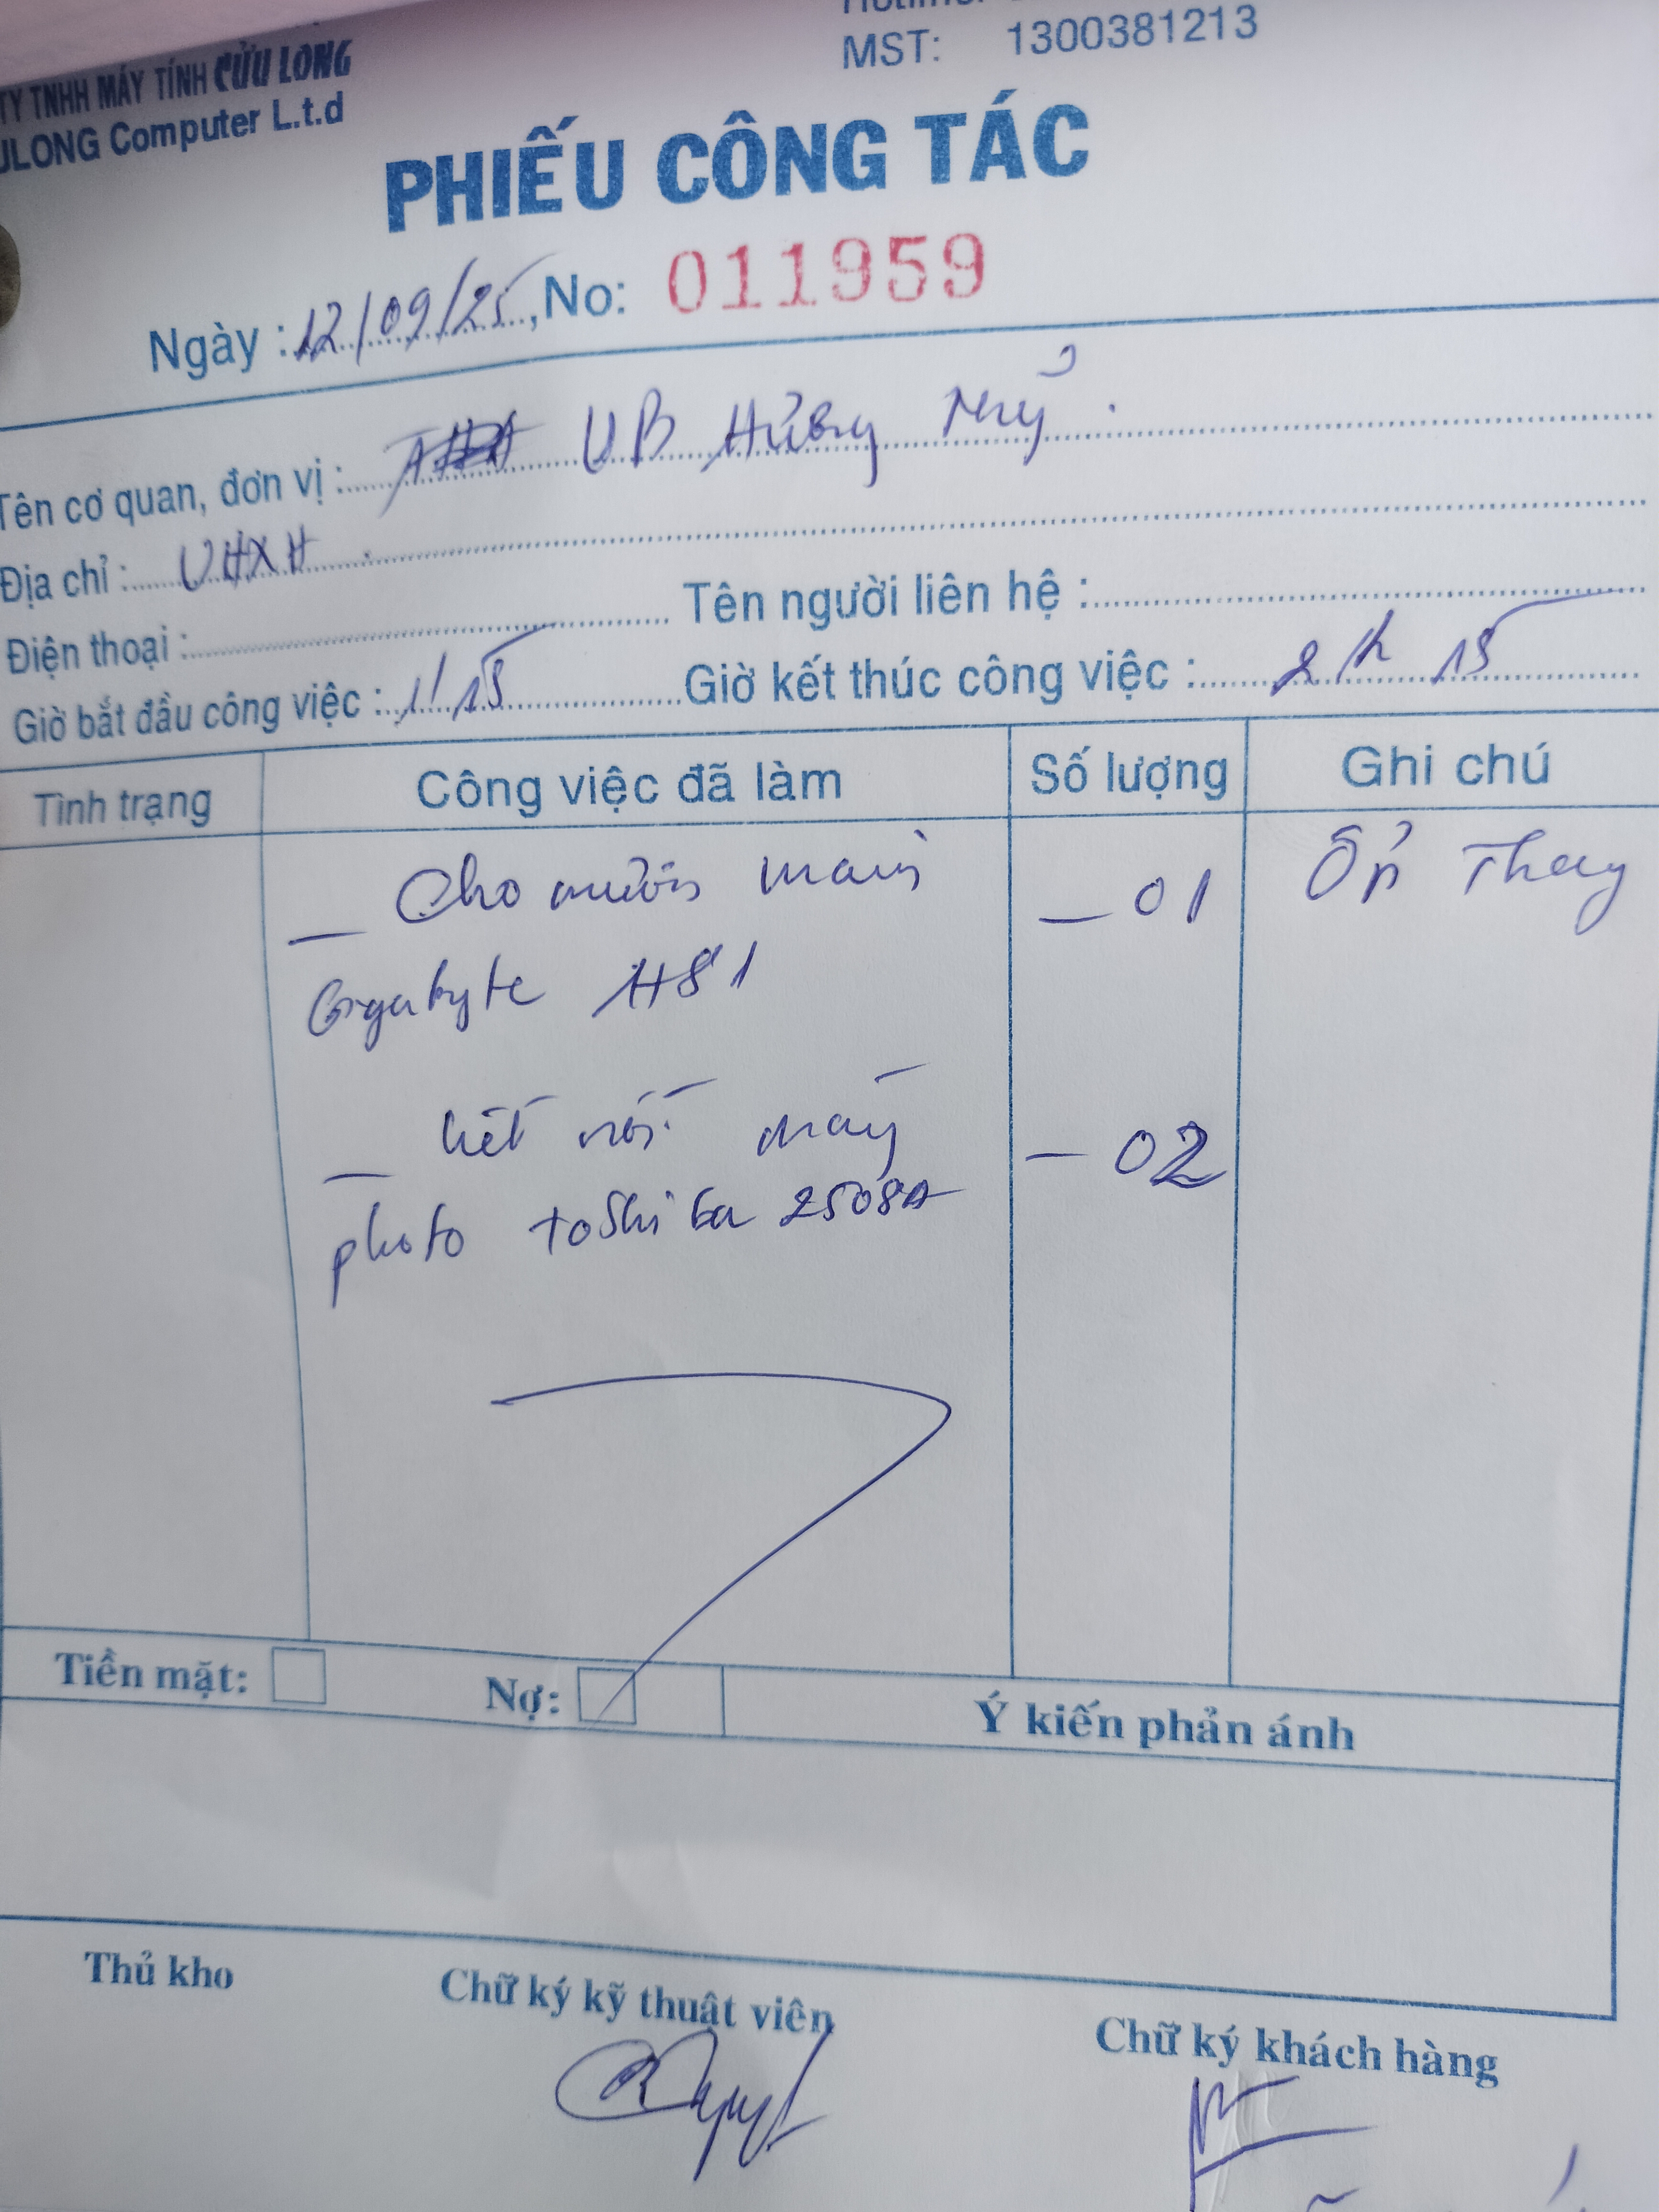 TY TNHH MÁY TÍNH CỬU LONG
ULONG Computer L.t.d
MST: 1300381213
PHIẾU CÔNG TÁC
Ngày : 12/09/25, No: 011959
Tên cơ quan, đơn vị : UB Hưng Mỹ
Địa chỉ : VHXH
Điện thoại : Tên người liên hệ :
Giờ bắt đầu công việc : 1h15 Giờ kết thúc công việc : 2h 15
Tình trạng Công việc đã làm Số lượng Ghi chú
_ Cho mượn main _ 01 Ổn Thay
Gigabyte H81
_ kết nối máy - 02
photo toshiba 2508A
Tiền mặt: Nợ: Ý kiến phản ánh
Thủ kho Chữ ký kỹ thuật viên Chữ ký khách hàng